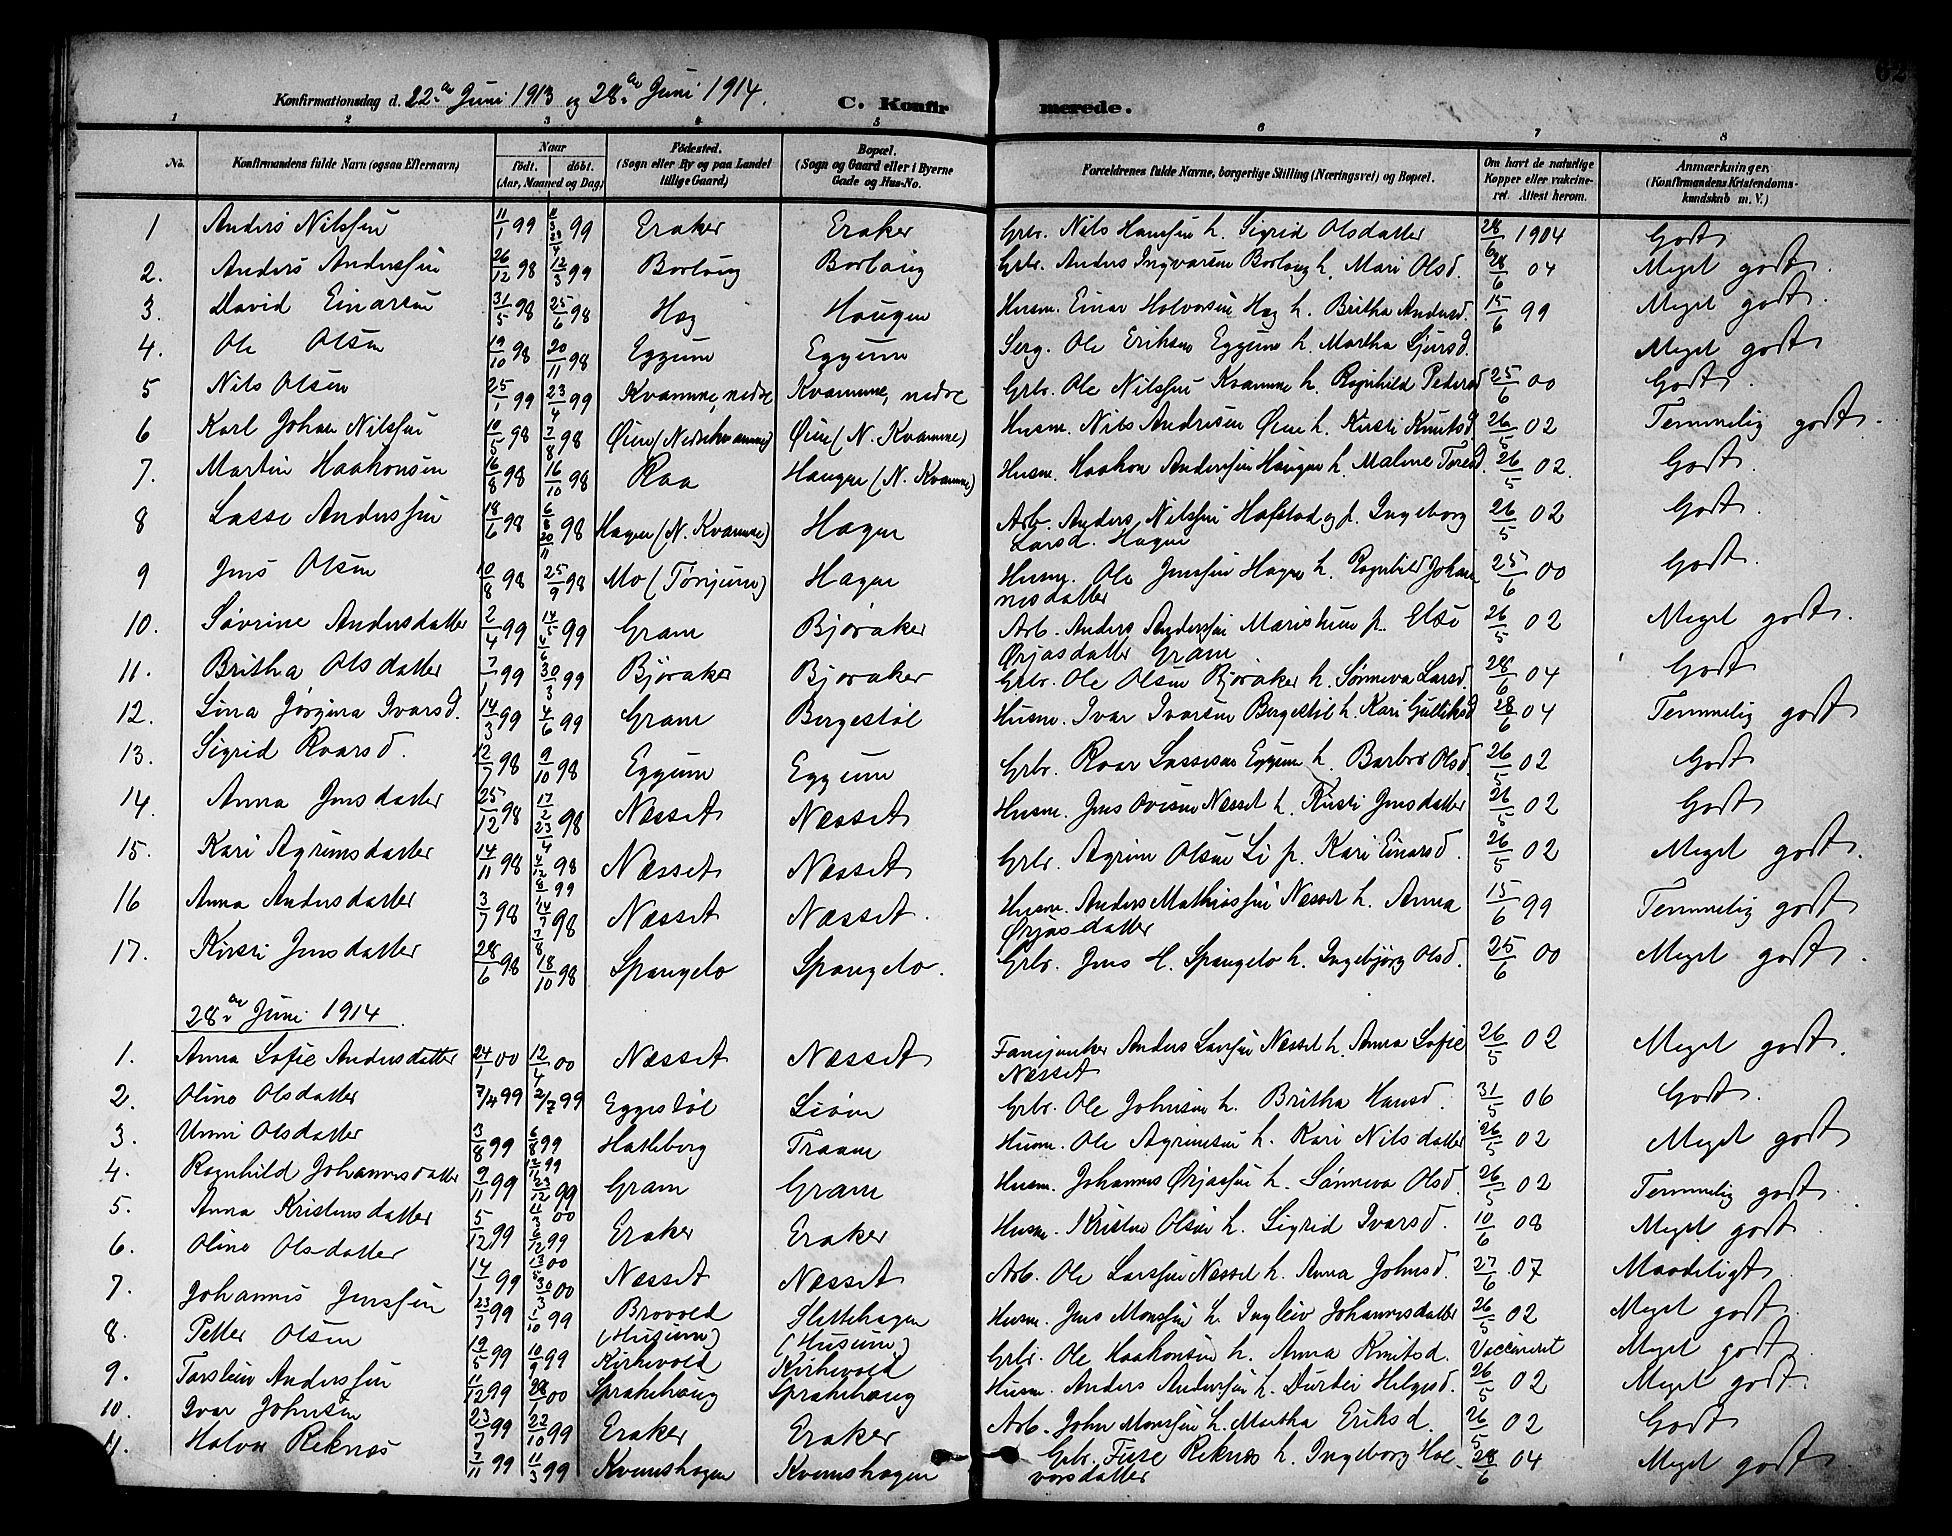 62
Konfirmationsdag d. 22de Juni 1913 og 28de Juni 1914.
C. Konfirmerede.
1 2 3 4 5 6 7 8
No. Konfirmandens fulde Navn (ogsaa Efternavn) Naar født. døbt. (Aar, Maaned og Dag) Fødested. (Sogn eller By og paa Landet tillige Gaard) Bopæl. (Sogn og Gaard eller i Byerne Gade og Hus-No. Forældrenes fulde Navne, borgerlige Stilling (Næringsvei) og Bopæl. Om havt de naturlige Kopper eller vakcineret. Attest herom. Anmærkninger. (Konfirmandens Kristendomskundskab m. V.)
1 Anders Nilssen 11/1 99 11/3 23/4 99 Eraker Eraker Grbr. Nils Hanssen h. Sigrid Olsdatter 28/6 1904 Godt
2. Anders Anderssen 26/12 98 12/3 99 Borlaug Borlaug Grbr. Anders Ingvarsen Borlaug h. Mari Olsd. 28/6 04 Meget godt.
3. David Einarsen 31/5 98 25/6 98 Hæg Haugen Husm. Einar Halvorsen Hæg h. Britha Andersd. 15/6 99 Meget godt.
4. Ole Olsen 19/10 98 20/11 98 Eggum Eggum Serg. Ole Eriksen Eggum h. Martha Sjursd. Meget godt
5 Nils Olsen 25/1 99 23/4 99 Kvamme, nedre Kvamme, nedre Grbr. Ole Nilssen Kvamme h. Ragnhild Pedersd 25/6 00 Godt.
6 Karl Johan Nilssen 10/5 98 7/8 98 Øien (Nedrekvamme) Øien (N. Kvamme) Husm. Nils Andresen Øien h. Kirsti Knutsd 26/5 02 Temmelig godt.
7. Martin Haakonsen 16/8 98 16/10 98 Raa Haugen (N. Kvamme) Husm. Haakon Anderssen Haugen h. Malene Toresd. 26/5 02. Godt.
8 Lasse Anderssen 18/6 98 6/8 20/11 98 Hagen (N. Kvamme) Hagen Arb. Anders Nilssen Hafstad og p. Ingeborg Larsd. Hagen 26/5 02 Godt.
9 Jens Olsen 10/8 98 25/9 98 Mo (Tønjum) Hagen Husm. Ole Jenssen Hagen h. Ragnhild Johannesdatter 25/6 00 Godt.
10. Søvrine Andersdatter 2/4 99 14/5 4/6 99 Gram Bjøraker Arb. Anders Anderssen Maristuen p. Else Ørjasdatter Gram 26/5 02 Meget godt.
11. Britha Olsdatter 7/1 99 30/3 99 Bjøraker Bjøraker Grbr. Ole Olsen Bjøraker h. Sønneva Larsd. 28/6 04 Godt
12. Lina Jørgina Ivarsd. 14/3 99 4/6 99 Gram Bergestøl Husm. Ivar Ivarsen Bergestøl h. Kari Gulliksd 28/6 04 Temmelig godt
13. Sigrid Roarsd. 12/7 98 9/10 98 Eggum Eggum Grbr. Roar Lassesen Eggum h. Barbro Olsd. 26/5 02 Godt
14. Anna Jensdatter 25/12 98 17/2 23/4 98 Næsset Næsset Husm. Jens Ovesen Næsset h. Kirsti Jensdatter 26/5 02 Godt
15. Kari Agrimsdatter 14/11 98 4/12 98 8/1 99 Næsset Næsset Grbr. Agrim Olsen Li p. Kari Einarsd. 26/5 02 Meget godt.
16 Anna Andersdatter 3/7 98 14/7 7/8 98 Næsset Næsset. Husm. Anders Mathiassen Næsset h. Anna Ørjasdatter 15/6 99 Temmelig godt
17. Kirsti Jensdatter 28/6 98 18/10 98 Spangelo Spangelo. Grbr. Jens H. Spangelo h. Ingebjørg Olsd. 25/6 00 Meget godt.
28de Juni 1914.
1. Anna Sofie Andersdatter 24/1 00 12/4 00 Næsset Næsset Fanejunker Anders Larssen Næsset h. Anna Sofie Næsset 26/5 02 Meget godt.
2. Oline Olsdatter 7/4 99 2/7 99 Eggestøl Liøen Grbr. Ole Johnsen h. Britha Hansd. 31/5 06 Godt.
3. Unni Olsdatter 3/8 99 6/8 99 12/11 99 Hatleberg Traaen Husm. Ole Agrimsen h. Kari Nilsdatter 26/5 02 Meget godt
4. Ragnhild Johannesdatter 9/11 99 23/12 99 11/3 00 Gram Gram Husm. Johannes Ørjassen h. Sønneva Olsd. 26/5 02 Temmelig godt.
5. Anna Kristensdatter 5/12 99 6/12 99 13/5 00 Eraker Eraker Husm. Kristen Olsen h. Sigrid Ivarsd. 10/6 08 Meget godt
6. Oline Olsdatter 14/1 99 30/3 00 Næsset Næsset Arb. Ole Larssen Næsset h. Anna Johnsd. 27/6 07 Maadeligt
7. Johannes Jenssen 23/7 99 1/10 99 Brovold (Husum) Slettehagen (Husum) Husm. Jens Monssen h. Ingleiv Johannesdatter 26/5 02 Meget godt.
8. Petter Olsen 19/5 99 10/9 99 Kirkevold Kirkevold Grbr. Ole Haakonsen h. Anna Knutsd. Vaccineret Meget godt.
9. Torstein Anderssen 11/12 99 28/1 00 Sprakehaug Sprakehaug Husm. Anders Anderssen h. Durdei Helgesd. 26/5 02 Meget godt.
10. Ivar Johnsen 23/7 99 22/10 99 Eraker Eraker Arb. John Monssen h. Martha Eriksd. 26/5 02 Godt
11. Halvor Reknæs 7/11 99 11/3 99 Kvemshagen Kvemshagen Grbr. Ture Reknæs h. Ingeborg Halvorsdatter 28/6 04 Meget godt